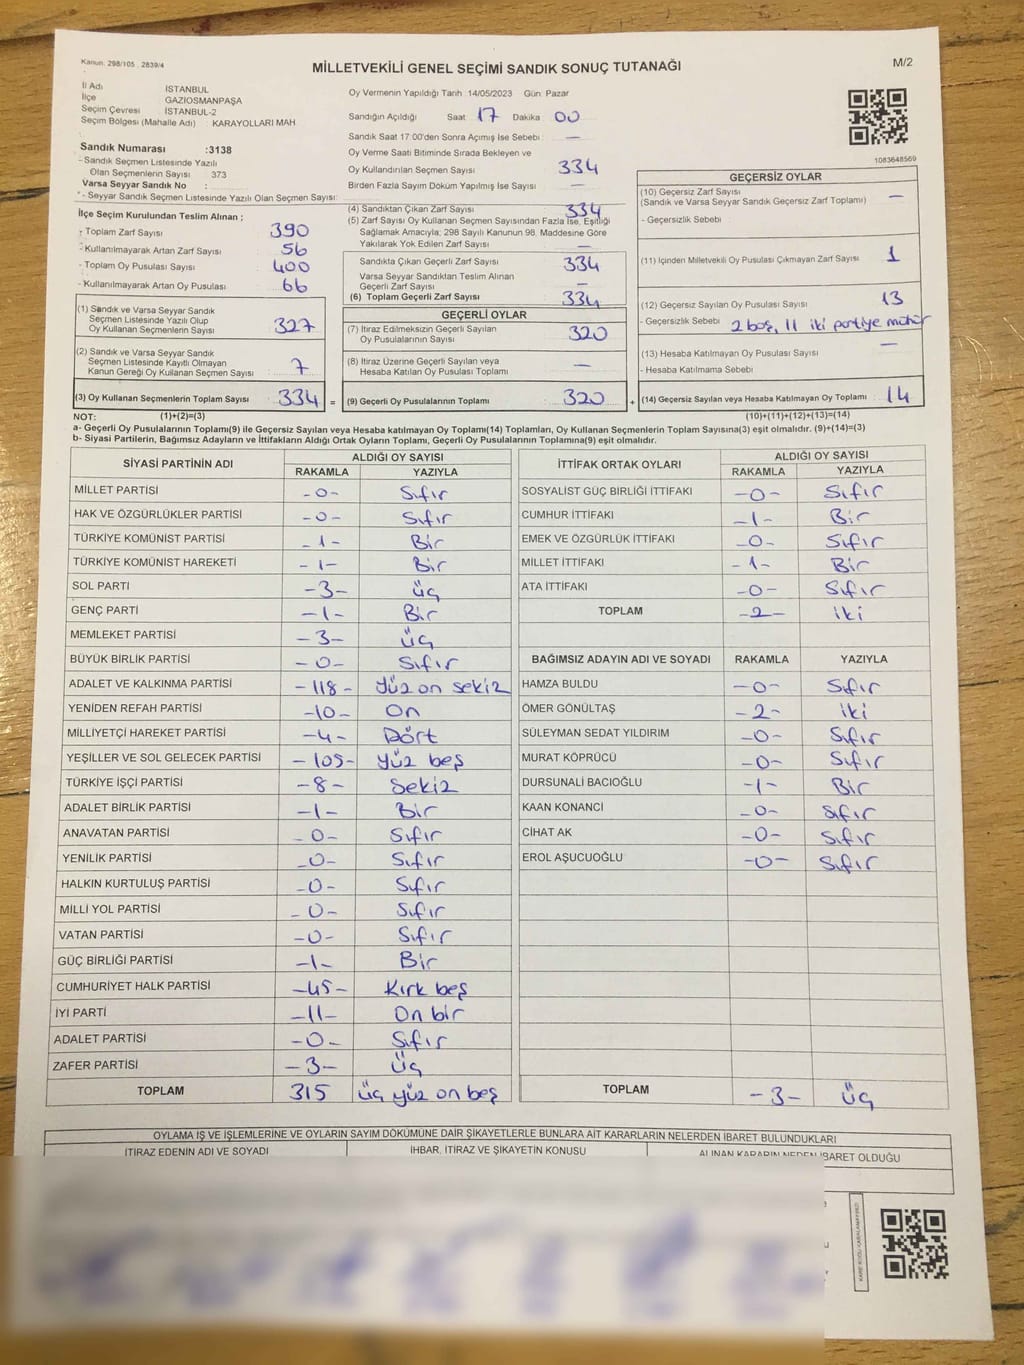 Kanun: 298/105, 2839/4
MİLLETVEKİLİ GENEL SEÇİMİ SANDIK SONUÇ TUTANAĞI
M/2
İl Adı İSTANBUL
İlçe GAZİOSMANPAŞA
Seçim Çevresi İSTANBUL-2
Seçim Bölgesi (Mahalle Adı) : KARAYOLLARI MAH
Sandık Numarası :3138
- Sandık Seçmen Listesinde Yazılı
Olan Seçmenlerin Sayısı : 373
Varsa Seyyar Sandık No :
*- Seyyar Sandık Seçmen Listesinde Yazılı Olan Seçmen Sayısı: —
İlçe Seçim Kurulundan Teslim Alınan :
- Toplam Zarf Sayısı 390
- Kullanılmayarak Artan Zarf Sayısı 56
- Toplam Oy Pusulası Sayısı 400
- Kullanılmayarak Artan Oy Pusulası 66
(1) Sandık ve Varsa Seyyar Sandık
Seçmen Listesinde Yazılı Olup
Oy Kullanan Seçmenlerin Sayısı 327
(2) Sandık ve Varsa Seyyar Sandık
Seçmen Listesinde Kayıtlı Olmayan
Kanun Gereği Oy Kullanan Seçmen Sayısı 7
(3) Oy Kullanan Seçmenlerin Toplam Sayısı 334 =
Oy Vermenin Yapıldığı Tarih : 14/05/2023 Gün: Pazar
Sandığın Açıldığı Saat 17 Dakika 00
Sandık Saat 17:00'den Sonra Açımış İse Sebebi : —
Oy Verme Saati Bitiminde Sırada Bekleyen ve
Oy Kullandırılan Seçmen Sayısı 334
Birden Fazla Sayım Döküm Yapılmış İse Sayısı —
(4) Sandıktan Çıkan Zarf Sayısı 334
(5) Zarf Sayısı Oy Kullanan Seçmen Sayısından Fazla İse, Eşitliği
Sağlamak Amacıyla; 298 Sayılı Kanunun 98. Maddesine Göre
Yakılarak Yok Edilen Zarf Sayısı —
Sandıkta Çıkan Geçerli Zarf Sayısı 334
Varsa Seyyar Sandıktan Teslim Alınan
Geçerli Zarf Sayısı
(6) Toplam Geçerli Zarf Sayısı 334
GEÇERLİ OYLAR
(7) İtiraz Edilmeksizin Geçerli Sayılan
Oy Pusulalarının Sayısı 320
(8) İtiraz Üzerine Geçerli Sayılan veya
Hesaba Katılan Oy Pusulası Toplamı —
(9) Geçerli Oy Pusulalarının Toplamı 320 +
1083648569
GEÇERSİZ OYLAR
(10) Geçersiz Zarf Sayısı
(Sandık ve Varsa Seyyar Sandık Geçersiz Zarf Toplamı) —
- Geçersizlik Sebebi
(11) İçinden Milletvekili Oy Pusulası Çıkmayan Zarf Sayısı 1
(12) Geçersiz Sayılan Oy Pusulası Sayısı 13
- Geçersizlik Sebebi 2 boş, 11 iki partiye mühür
(13) Hesaba Katılmayan Oy Pusulası Sayısı —
- Hesaba Katılmama Sebebi
(14) Geçersiz Sayılan veya Hesaba Katılmayan Oy Toplamı 14
NOT: (1)+(2)=(3) (10)+(11)+(12)+(13)=(14)
a- Geçerli Oy Pusulalarının Toplamı(9) ile Geçersiz Sayılan veya Hesaba katılmayan Oy Toplamı(14) Toplamları, Oy Kullanan Seçmenlerin Toplam Sayısına(3) eşit olmalıdır. (9)+(14)=(3)
b- Siyasi Partilerin, Bağımsız Adayların ve İttifakların Aldığı Ortak Oyların Toplamı, Geçerli Oy Pusulalarının Toplamına(9) eşit olmalıdır.
SİYASİ PARTİNİN ADI ALDIĞI OY SAYISI
RAKAMLA YAZIYLA
MİLLET PARTİSİ -0- Sıfır
HAK VE ÖZGÜRLÜKLER PARTİSİ -0- Sıfır
TÜRKİYE KOMÜNİST PARTİSİ -1- Bir
TÜRKİYE KOMÜNİST HAREKETİ -1- Bir
SOL PARTİ -3- üç
GENÇ PARTİ -1- Bir
MEMLEKET PARTİSİ -3- üç
BÜYÜK BİRLİK PARTİSİ -0- Sıfır
ADALET VE KALKINMA PARTİSİ -118- yüz on sekiz
YENİDEN REFAH PARTİSİ -10- On
MİLLİYETÇİ HAREKET PARTİSİ -4- Dört
YEŞİLLER VE SOL GELECEK PARTİSİ -105- yüz beş
TÜRKİYE İŞÇİ PARTİSİ -8- Sekiz
ADALET BİRLİK PARTİSİ -1- Bir
ANAVATAN PARTİSİ -0- Sıfır
YENİLİK PARTİSİ -0- Sıfır
HALKIN KURTULUŞ PARTİSİ -0- Sıfır
MİLLİ YOL PARTİSİ -0- Sıfır
VATAN PARTİSİ -0- Sıfır
GÜÇ BİRLİĞİ PARTİSİ -1- Bir
CUMHURİYET HALK PARTİSİ -45- Kırk beş
İYİ PARTİ -11- On bir
ADALET PARTİSİ -0- Sıfır
ZAFER PARTİSİ -3- üç
TOPLAM 315 üç yüz on beş
İTTİFAK ORTAK OYLARI ALDIĞI OY SAYISI
RAKAMLA YAZIYLA
SOSYALİST GÜÇ BİRLİĞİ İTTİFAKI -0- Sıfır
CUMHUR İTTİFAKI -1- Bir
EMEK VE ÖZGÜRLÜK İTTİFAKI -0- Sıfır
MİLLET İTTİFAKI -1- Bir
ATA İTTİFAKI -0- Sıfır
TOPLAM -2- iki
BAĞIMSIZ ADAYIN ADI VE SOYADI RAKAMLA YAZIYLA
HAMZA BULDU -0- Sıfır
ÖMER GÖNÜLTAŞ -2- iki
SÜLEYMAN SEDAT YILDIRIM -0- Sıfır
MURAT KÖPRÜCÜ -0- Sıfır
DURSUNALİ BACIOĞLU -1- Bir
KAAN KONANCİ -0- Sıfır
CİHAT AK -0- Sıfır
EROL AŞUCUOĞLU -0- Sıfır
TOPLAM -3- üç
OYLAMA İŞ VE İŞLEMLERİNE VE OYLARIN SAYIM DÖKÜMÜNE DAİR ŞİKAYETLERLE BUNLARA AİT KARARLARIN NELERDEN İBARET BULUNDUKLARI
İTİRAZ EDENİN ADI VE SOYADI İHBAR, İTİRAZ VE ŞİKAYETİN KONUSU ALINAN KARARIN NEDEN İBARET OLDUĞU
KARE KODU KARALAMAYINIZ!